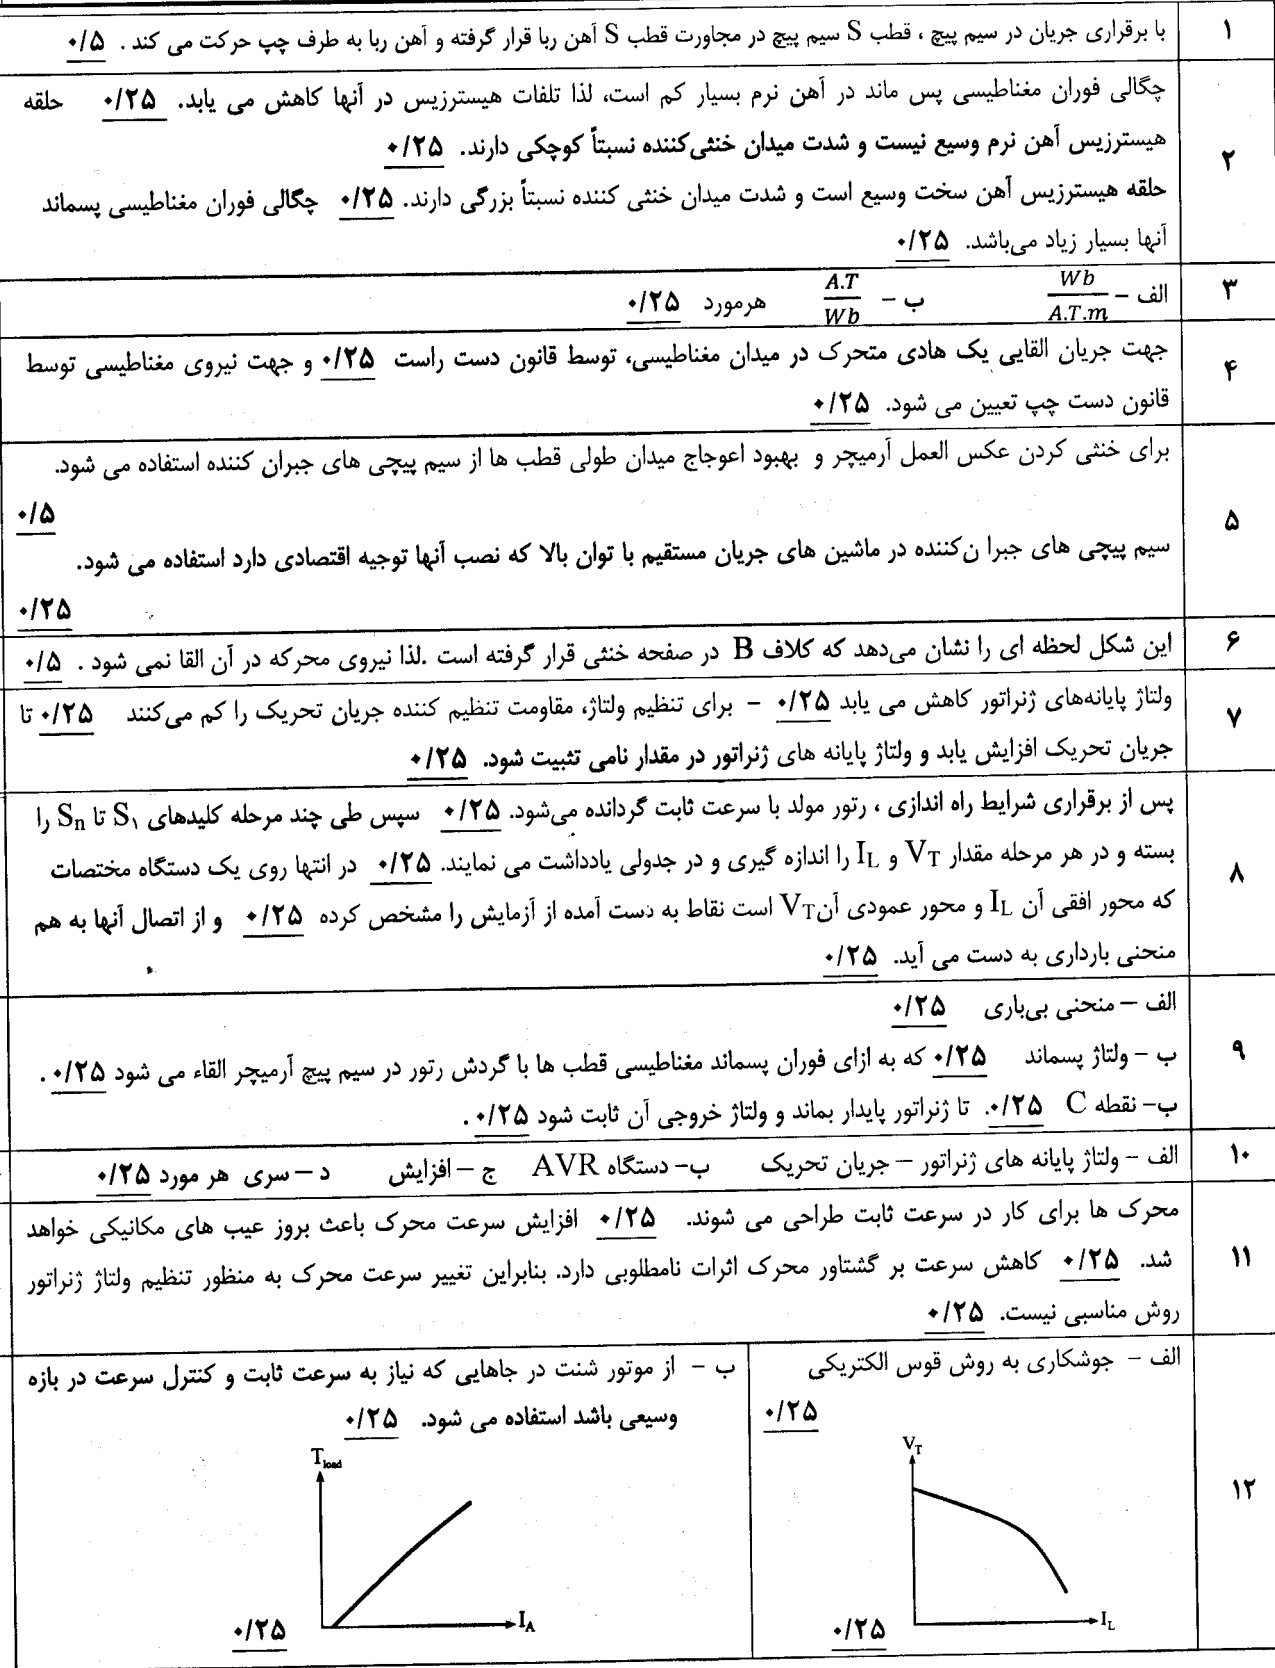 ۱ با برقراری جریان در سیم پیچ ، قطب S سیم پیچ در مجاورت قطب S آهن ربا قرار گرفته و آهن ربا به طرف چپ حرکت می کند . ۰/۵
چگالی فوران مغناطیسی پس ماند در آهن نرم بسیار کم است، لذا تلفات هیسترزیس در آنها کاهش می یابد. ۰/۲۵ حلقه
هیسترزیس آهن نرم وسیع نیست و شدت میدان خنثی‌کننده نسبتاً کوچکی دارند. ۰/۲۵
۲
حلقه هیسترزیس آهن سخت وسیع است و شدت میدان خنثی کننده نسبتاً بزرگی دارند. ۰/۲۵ چگالی فوران مغناطیسی پسماند
آنها بسیار زیاد می‌باشد. ۰/۲۵
۳ الف – Wb/A.T.m ب – A.T/Wb هرمورد ۰/۲۵
۴ جهت جریان القایی یک هادی متحرک در میدان مغناطیسی، توسط قانون دست راست ۰/۲۵ و جهت نیروی مغناطیسی توسط
قانون دست چپ تعیین می شود. ۰/۲۵
برای خنثی کردن عکس العمل آرمیچر و بهبود اعوجاج میدان طولی قطب ها از سیم پیچی های جبران کننده استفاده می شود.
۰/۵
۵
سیم پیچی های جبرا ن‌کننده در ماشین های جریان مستقیم با توان بالا که نصب آنها توجیه اقتصادی دارد استفاده می شود.
۰/۲۵
۶ این شکل لحظه ای را نشان می‌دهد که کلاف B در صفحه خنثی قرار گرفته است .لذا نیروی محرکه در آن القا نمی شود . ۰/۵
۷ ولتاژ پایانه‌های ژنراتور کاهش می یابد ۰/۲۵ – برای تنظیم ولتاژ، مقاومت تنظیم کننده جریان تحریک را کم می‌کنند ۰/۲۵ تا
جریان تحریک افزایش یابد و ولتاژ پایانه های ژنراتور در مقدار نامی تثبیت شود. ۰/۲۵
پس از برقراری شرایط راه اندازی ، رتور مولد با سرعت ثابت گردانده می‌شود. ۰/۲۵ سپس طی چند مرحله کلیدهای S۱ تا Sn را
بسته و در هر مرحله مقدار VT و IL را اندازه گیری و در جدولی یادداشت می نمایند. ۰/۲۵ در انتها روی یک دستگاه مختصات
۸
که محور افقی آن IL و محور عمودی آنVT است نقاط به دست آمده از آزمایش را مشخص کرده ۰/۲۵ و از اتصال آنها به هم
منحنی بارداری به دست می آید. ۰/۲۵
الف – منحنی بی‌باری ۰/۲۵
۹ ب – ولتاژ پسماند ۰/۲۵ که به ازای فوران پسماند مغناطیسی قطب ها با گردش رتور در سیم پیچ آرمیچر القاء می شود ۰/۲۵ .
ب– نقطه C ۰/۲۵. تا ژنراتور پایدار بماند و ولتاژ خروجی آن ثابت شود ۰/۲۵ .
۱۰ الف – ولتاژ پایانه های ژنراتور – جریان تحریک ب– دستگاه AVR ج – افزایش د – سری هر مورد ۰/۲۵
محرک ها برای کار در سرعت ثابت طراحی می شوند. ۰/۲۵ افزایش سرعت محرک باعث بروز عیب های مکانیکی خواهد
۱۱ شد. ۰/۲۵ کاهش سرعت بر گشتاور محرک اثرات نامطلوبی دارد. بنابراین تغییر سرعت محرک به منظور تنظیم ولتاژ ژنراتور
روش مناسبی نیست. ۰/۲۵
۱۲
الف – جوشکاری به روش قوس الکتریکی
۰/۲۵
VT
IL
۰/۲۵
ب – از موتور شنت در جاهایی که نیاز به سرعت ثابت و کنترل سرعت در بازه
وسیعی باشد استفاده می شود. ۰/۲۵
Tload
IA
۰/۲۵